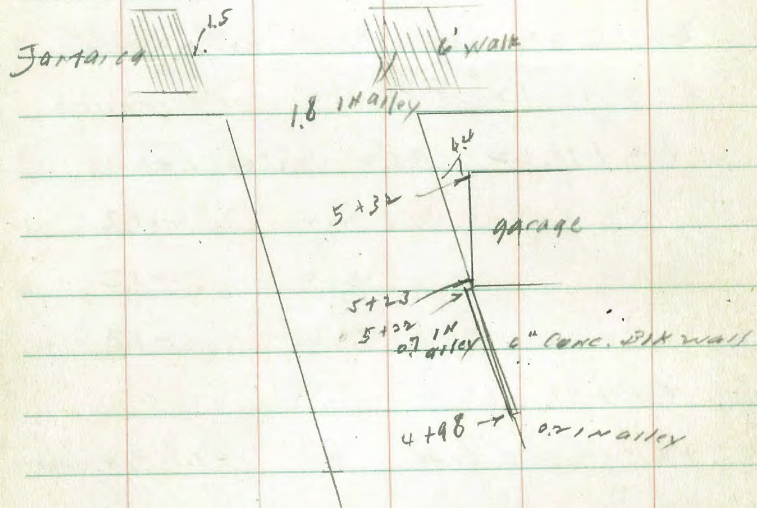 1.5
Jamaica
6' Walk
1.8 in alley
5 + 32
garage
5 + 23
5 + 22
0.7 in alley
6" Conc. Blk wall
4 + 98
0.2 in alley